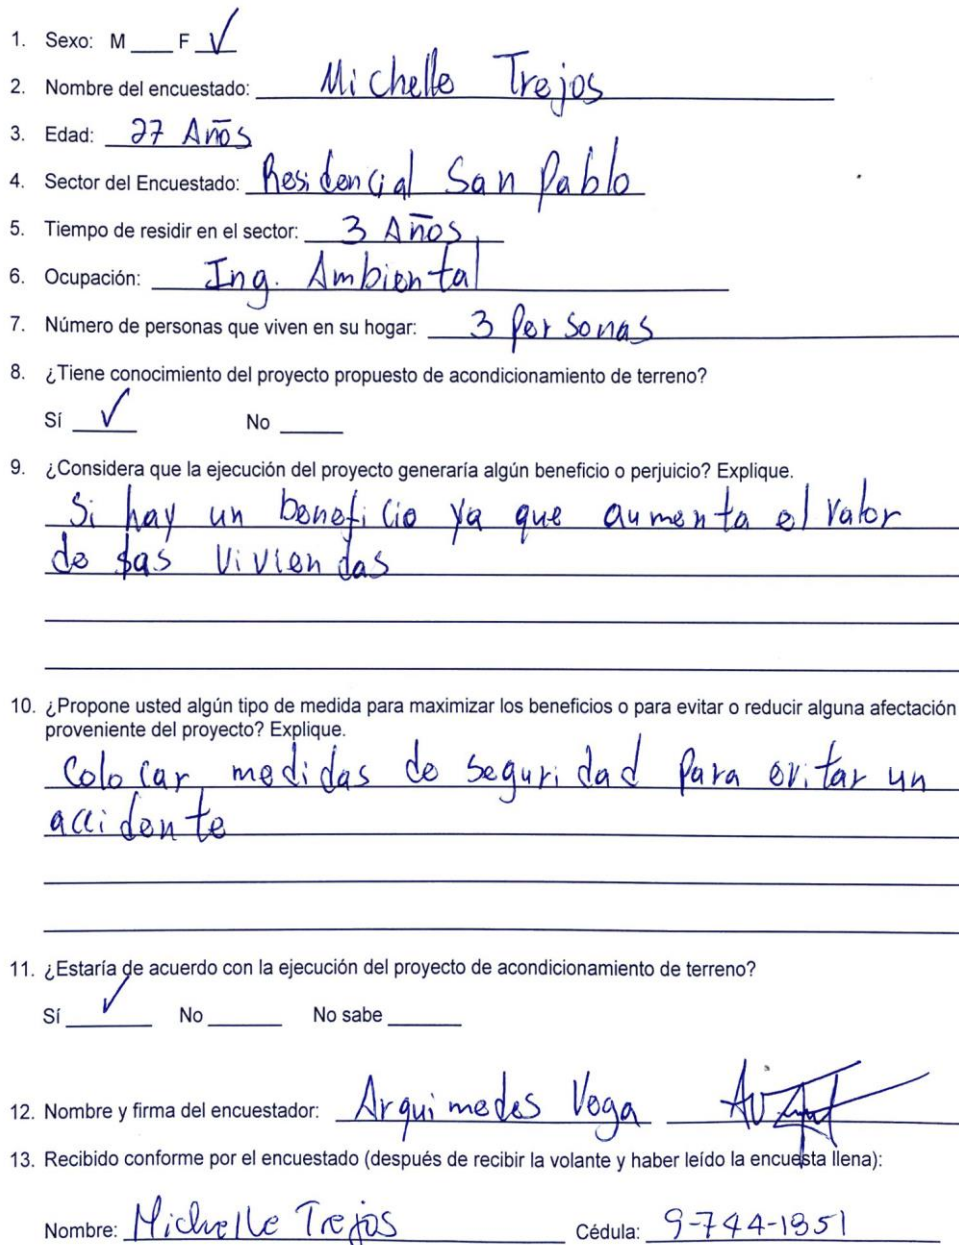 1. Sexo: M ____ F √
2. Nombre del encuestado: Michelle Trejos
3. Edad: 27 Años
4. Sector del Encuestado: Residencial San Pablo
5. Tiempo de residir en el sector: 3 Años
6. Ocupación: Ing. Ambiental
7. Número de personas que viven en su hogar: 3 Personas
8. ¿Tiene conocimiento del proyecto propuesto de acondicionamiento de terreno?
Sí √ No ____
9. ¿Considera que la ejecución del proyecto generaría algún beneficio o perjuicio? Explique.
Si hay un beneficio ya que aumenta el valor
de las viviendas
10. ¿Propone usted algún tipo de medida para maximizar los beneficios o para evitar o reducir alguna afectación
proveniente del proyecto? Explique.
Colocar medidas de seguridad Para evitar un
accidente
11. ¿Estaría de acuerdo con la ejecución del proyecto de acondicionamiento de terreno?
Sí √ No ____ No sabe ____
12. Nombre y firma del encuestador: Arquimedes Vega
13. Recibido conforme por el encuestado (después de recibir la volante y haber leído la encuesta llena):
Nombre: Michelle Trejos Cédula: 9-744-1351